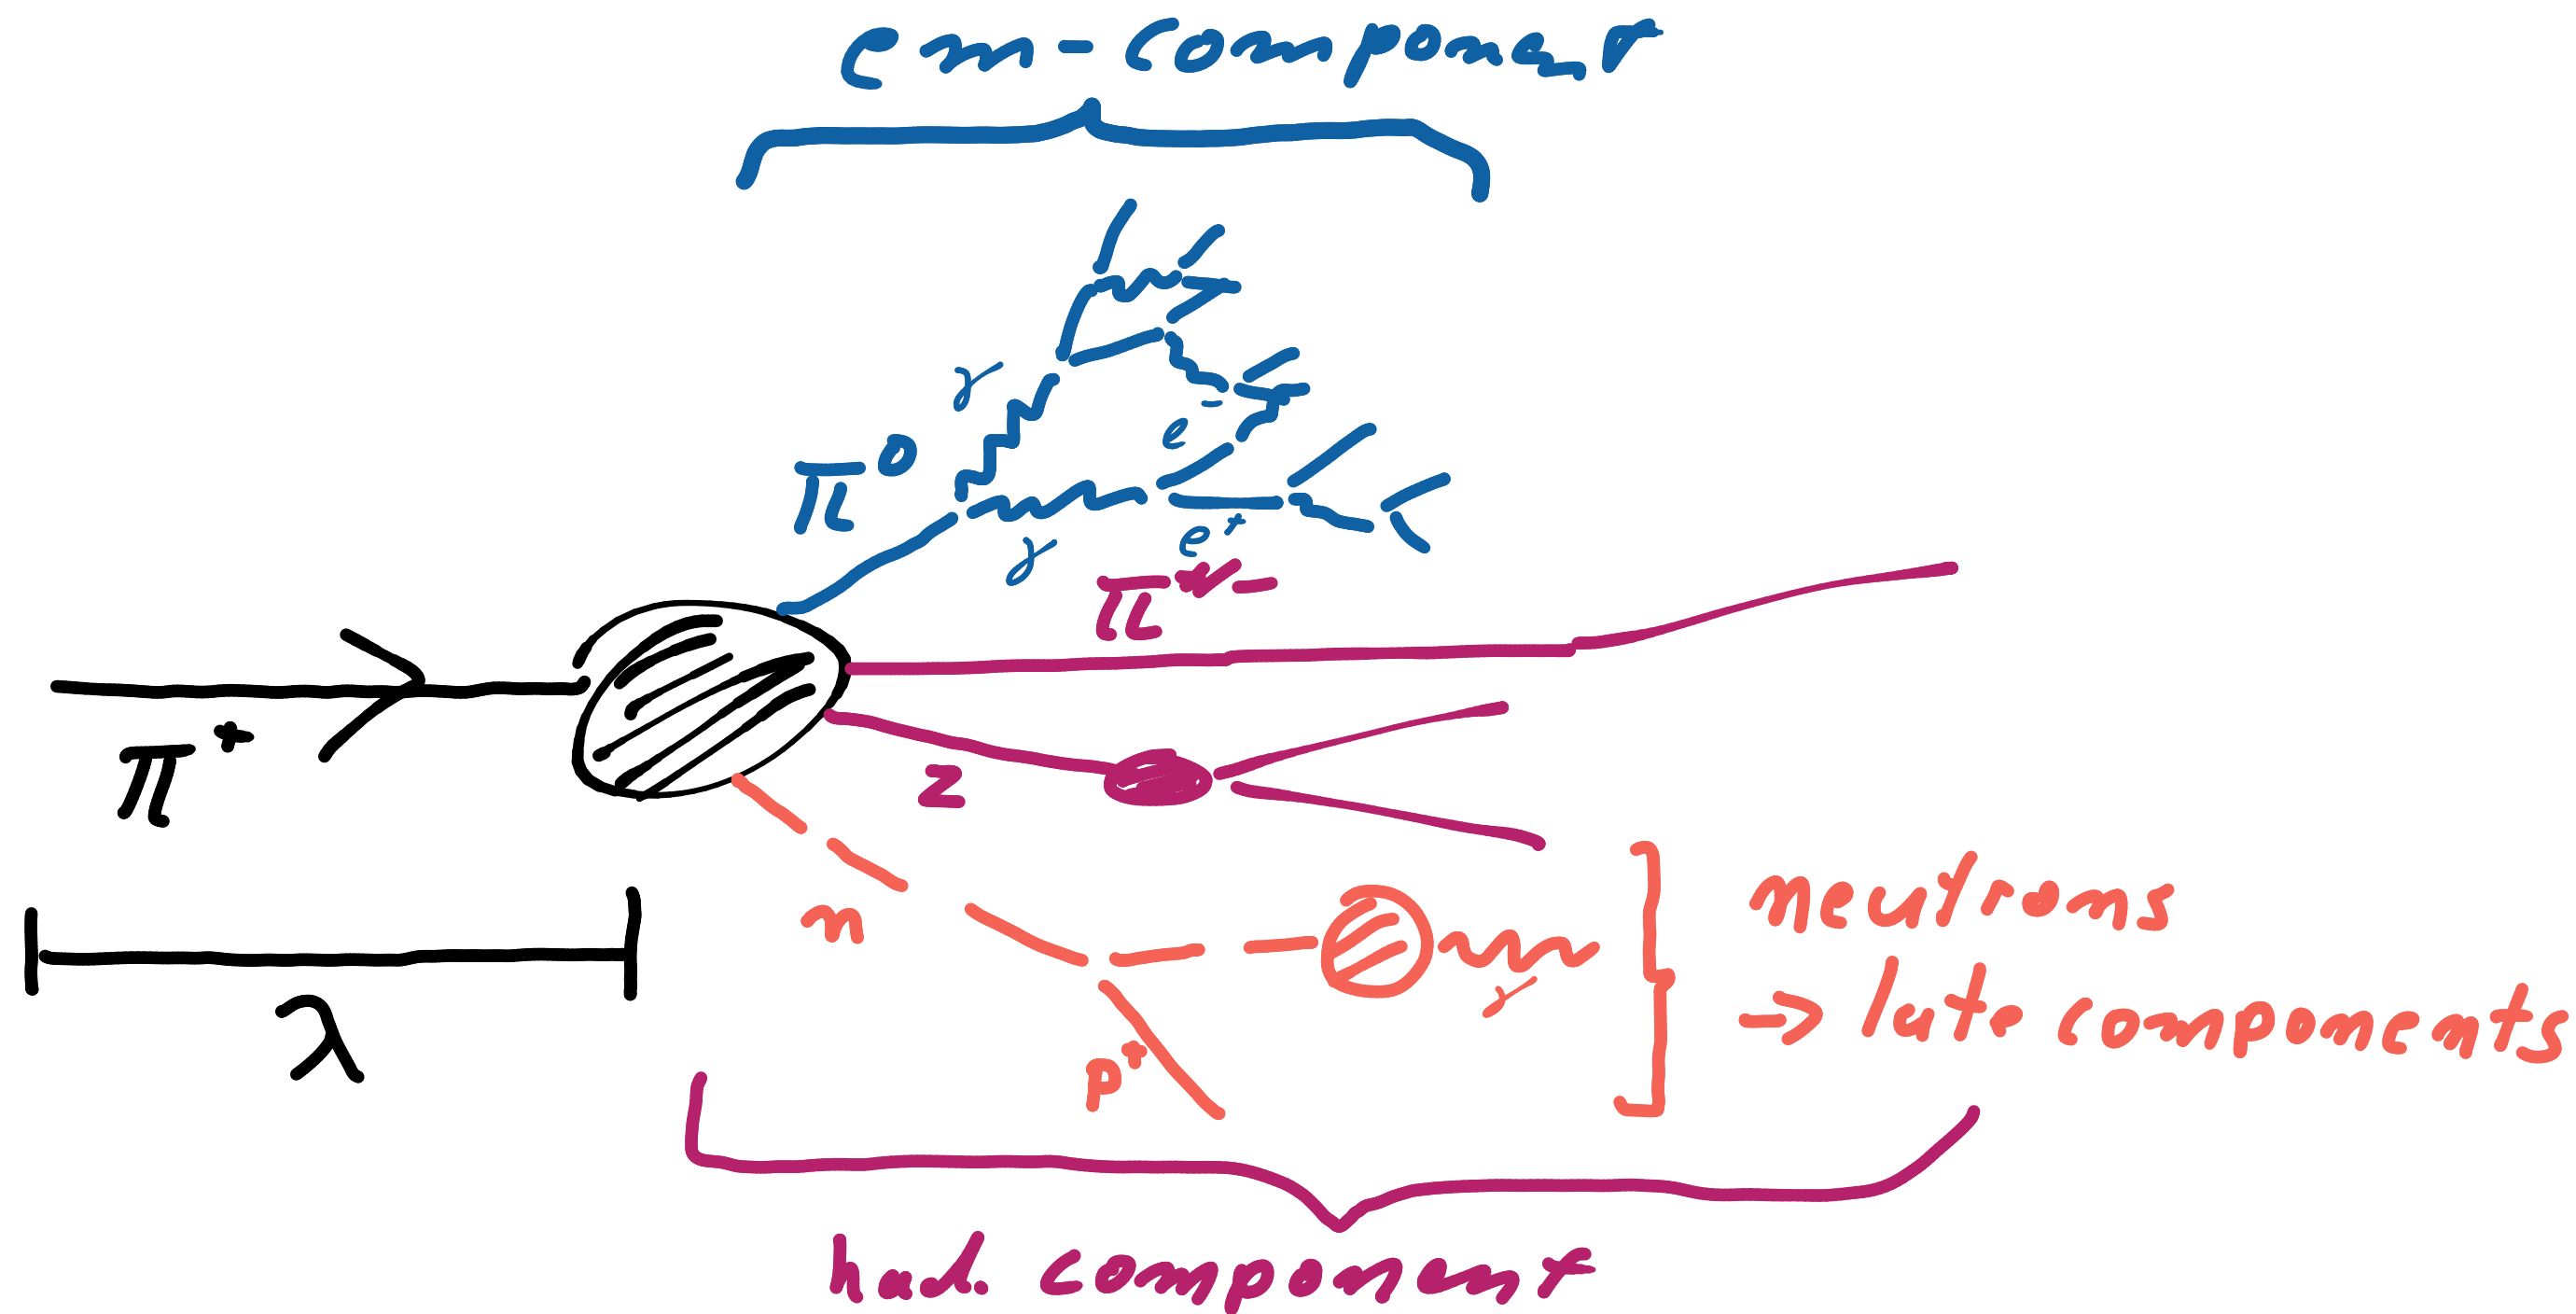 em-component
γ
π⁰
e⁻
γ
e⁺
π⁺/⁻
π⁺
z
n
neutrons
→ late components
γ
λ
p⁺
had. component